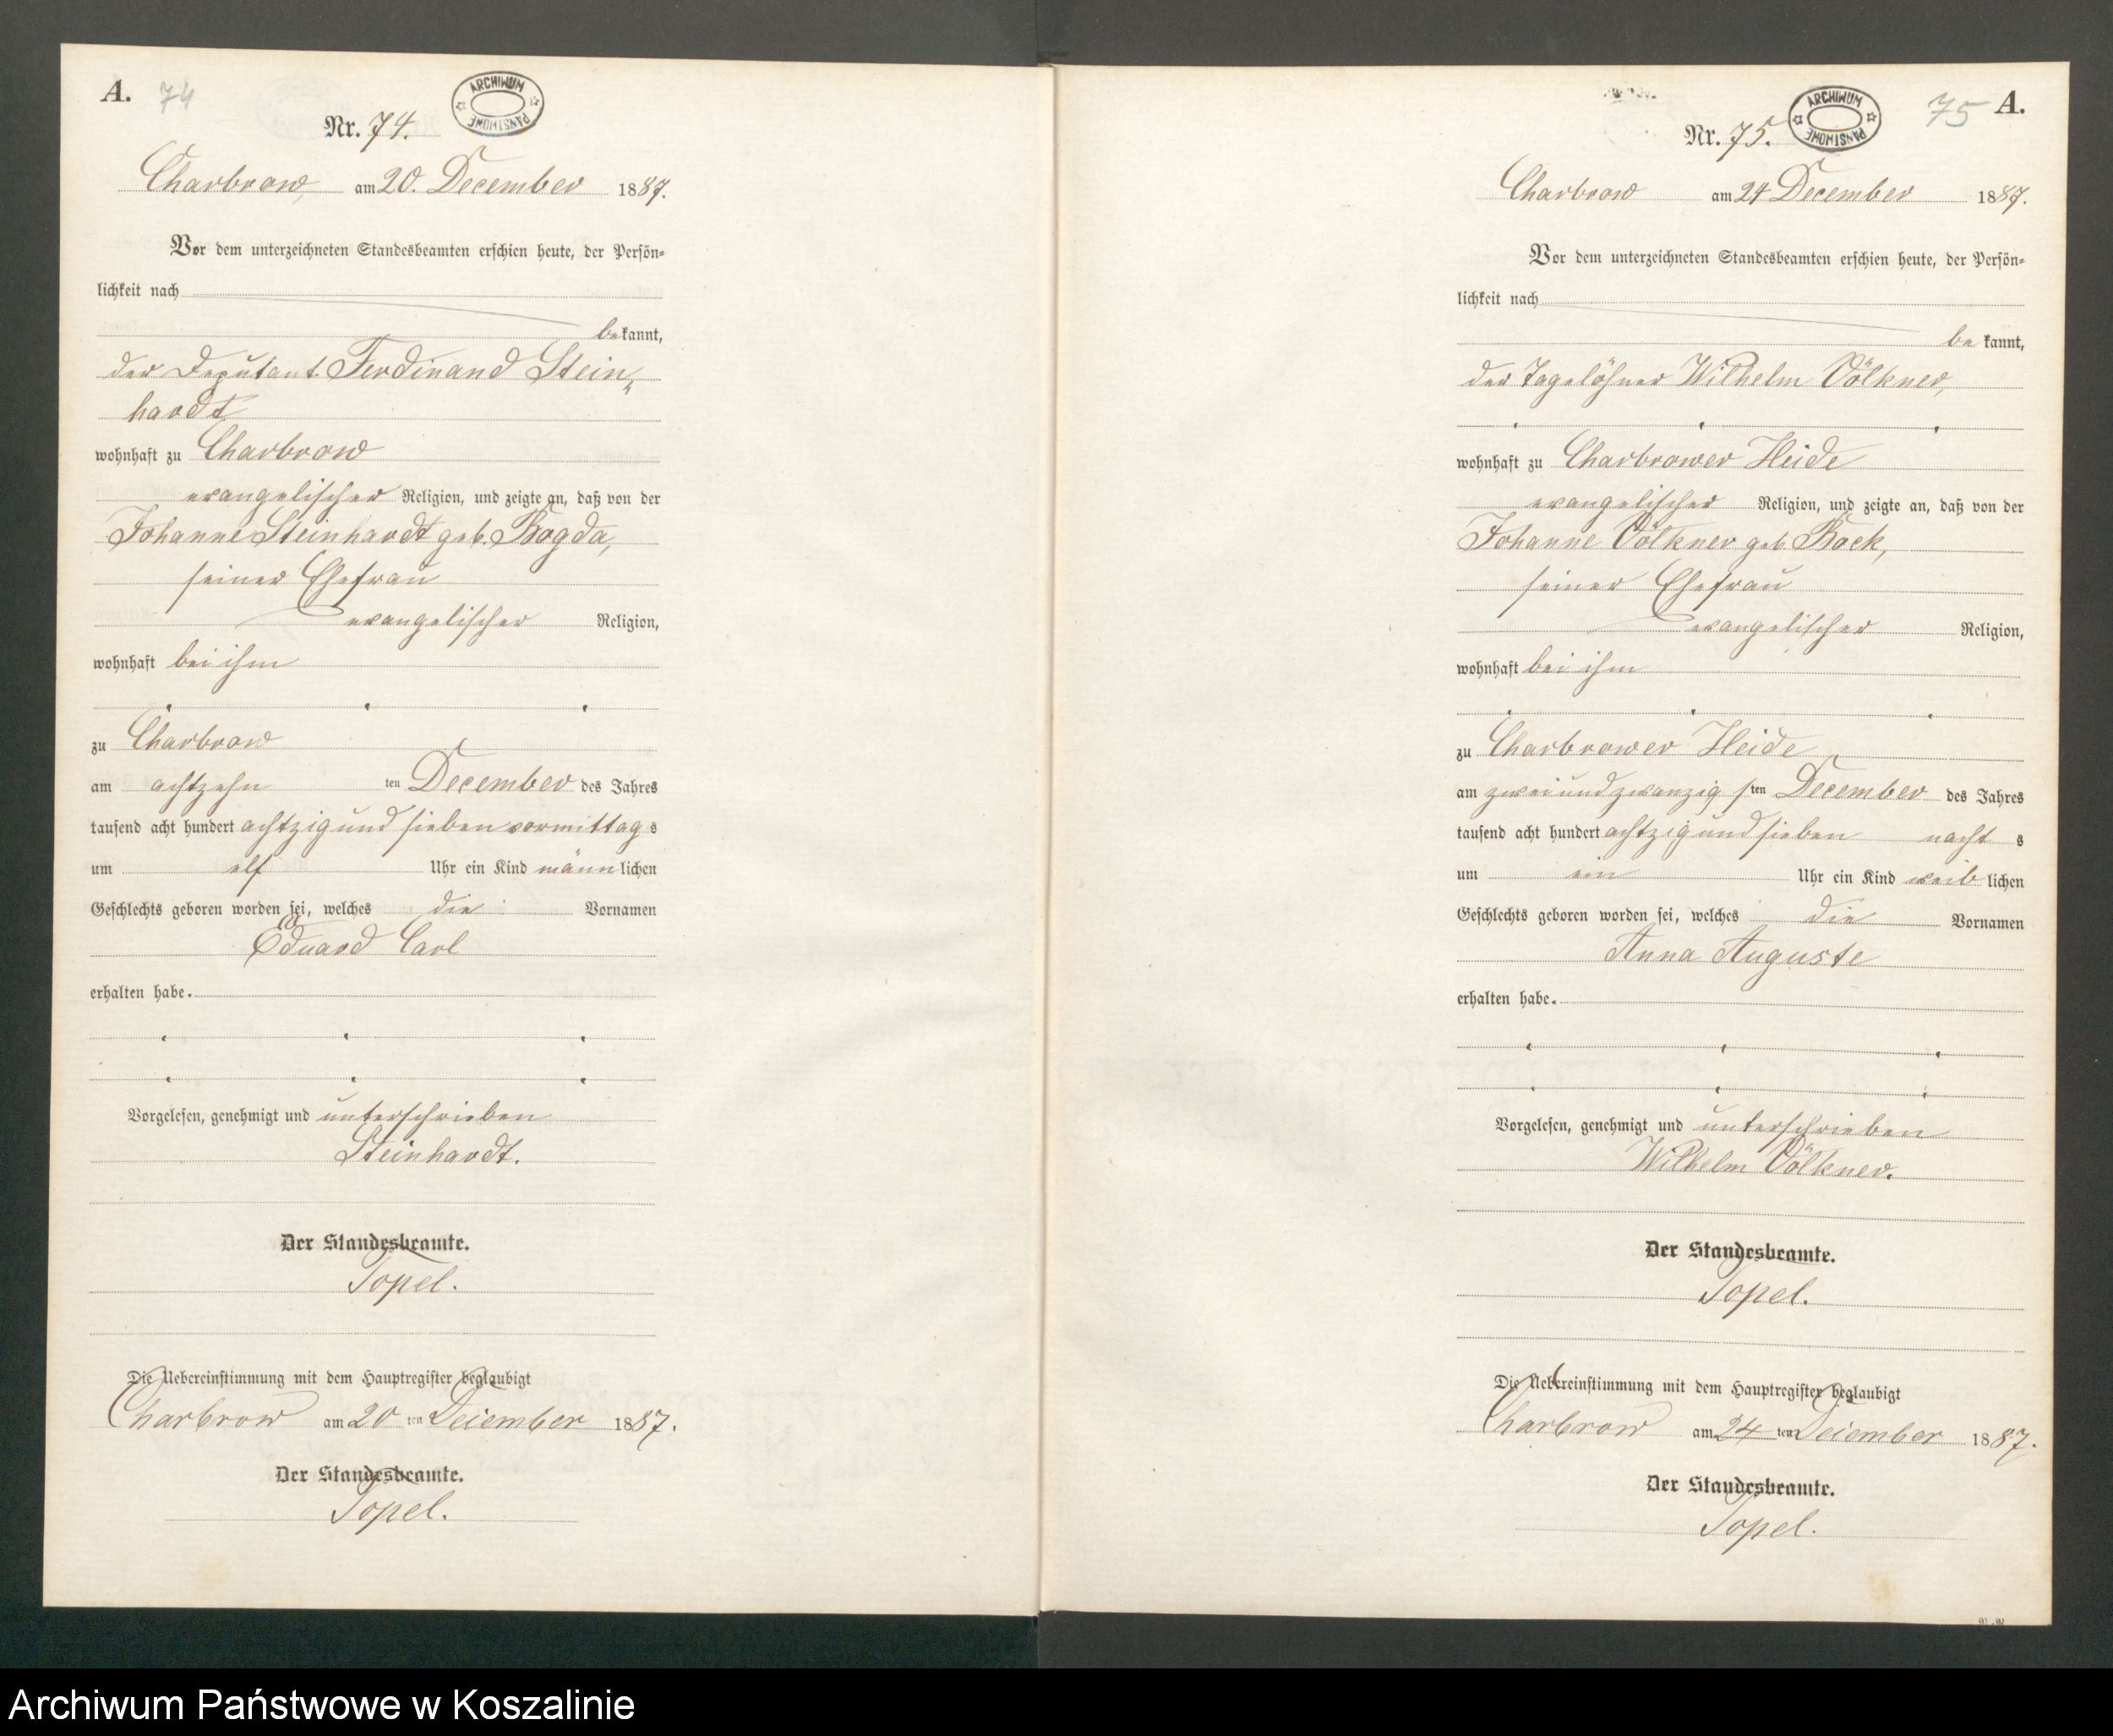 A. 74
ARCHIWUM PAŃSTWOWE
Nr. 74.
Charbrow, am 20. December 1887.
Vor dem unterzeichneten Standesbeamten erschien heute, der Persön=
lichkeit nach
bekannt,
der Deputant Ferdinand Stein„
hardt
wohnhaft zu Charbrow
evangelischer Religion, und zeigte an, daß von der
Johanne Steinhardt geb. Bogda,
seiner Ehefrau
evangelischer Religion,
wohnhaft bei ihm
zu Charbrow
am achtzehn ten December des Jahres
tausend acht hundert achtzig und sieben vormittag s
um elf Uhr ein Kind männlichen
Geschlechts geboren worden sei, welches die Vornamen
Eduard Carl
erhalten habe.
Vorgelesen, genehmigt und unterschrieben
Steinhardt.
Der Standesbeamte.
Topel.
Die Uebereinstimmung mit dem Hauptregister beglaubigt
Charbrow am 20 ten December 1887.
Der Standesbeamte.
Topel.
75 A.
ARCHIWUM PAŃSTWOWE
Nr. 75.
Charbrow am 24 December 1887.
Vor dem unterzeichneten Standesbeamten erschien heute, der Persön=
lichkeit nach
be kannt,
der Tagelöhner Wilhelm Völkner,
wohnhaft zu Charbrower Heide
evangelischer Religion, und zeigte an, daß von der
Johanne Völkner geb. Bock,
seiner Ehefrau
evangelischer Religion,
wohnhaft bei ihm
zu Charbrower Heide
am zwei und zwanzig sten December des Jahres
tausend acht hundert achtzig und sieben nacht s
um ein Uhr ein Kind weib lichen
Geschlechts geboren worden sei, welches die Vornamen
Anna Auguste
erhalten habe.
Vorgelesen, genehmigt und unterschrieben
Wilhelm Völkner.
Der Standesbeamte.
Topel.
Die Uebereinstimmung mit dem Hauptregister beglaubigt
Charbrow am 24 ten December 1887.
Der Standesbeamte.
Topel.
Archiwum Państwowe w Koszalinie